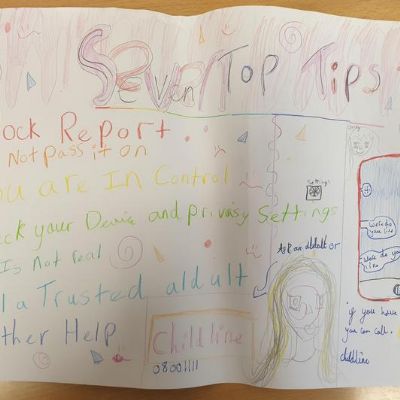 Seven Top Tips
ock Report
Not pass it on
ou are In Control
eck your Device and privasy settings
Is Not real
l a Trusted aldult
ther Help
Childline
08001111
Settings
Ask an aldult or
where do
you live
you live
if you have
you can call.
childline